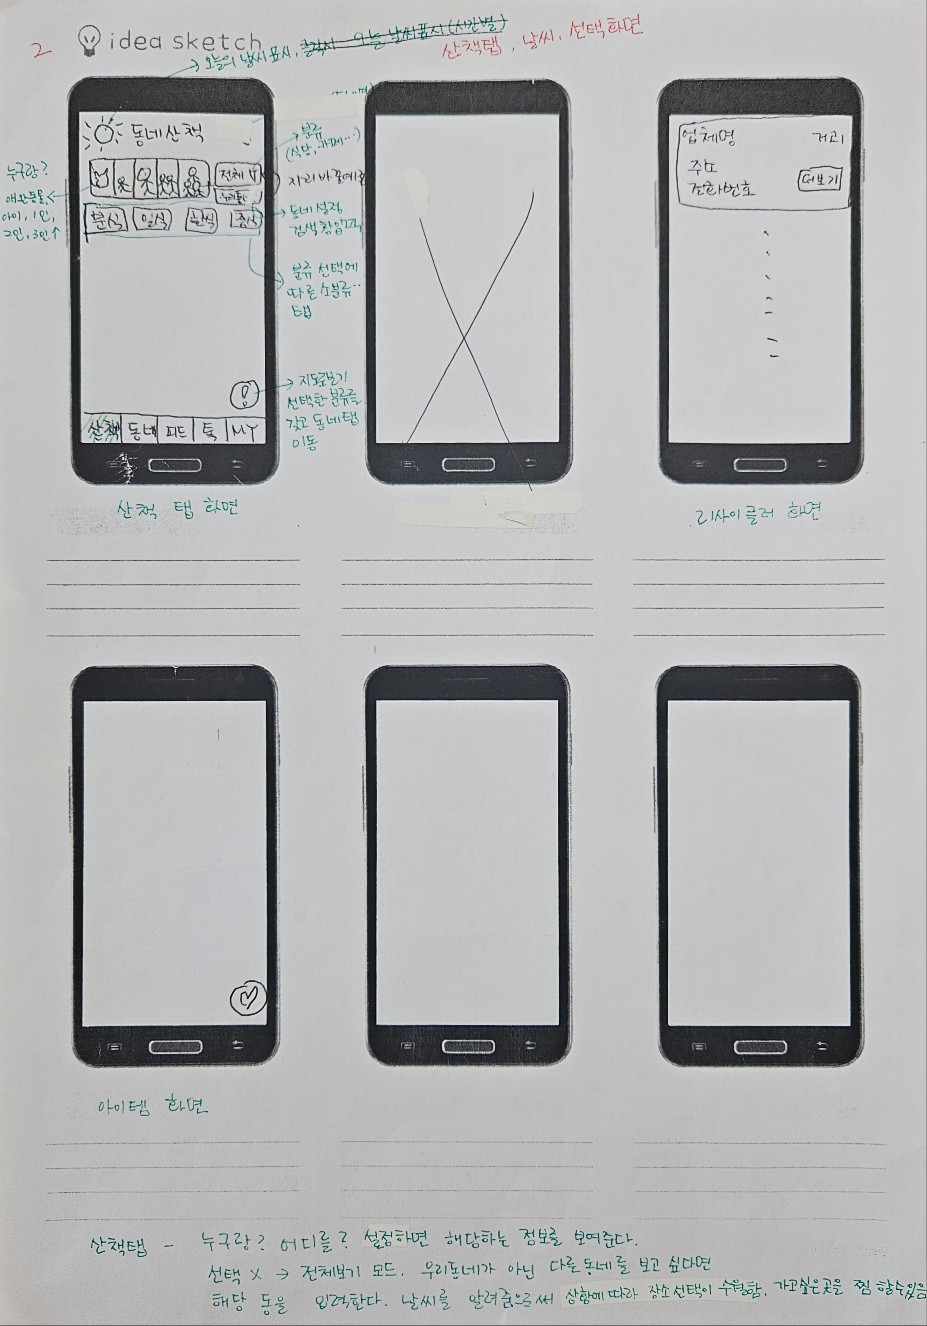 2
idea sketch
산책탭, 날씨, 선택화면
오늘의 날씨 표시, 클릭시 오늘 날씨표시(시간별)
동네산책
누구랑?
애완동물
아이, 1인,
2인, 3인↑
전체
우리동네
분식 일식 한식 중식
분류
(식당, 카페...)
자리바꿀예정
동네 설정
분류 선택에
따른 소분류..
탭
지도로보기
선택한 분류를
갖고 동네탭
이동
산책 동네 피드 톡 MY
산책 탭 화면
업체명 거리
주소
전화번호 더보기
리사이클러 화면
아이템 화면
산책탭 - 누구랑? 어디를? 설정하면 해당하는 정보를 보여준다.
선택 X → 전체보기 모드. 우리동네가 아닌 다른동네를 보고 싶다면
해당 동을 입력한다. 날씨를 알려줌으로써 상황에 따라 장소선택이 수월함. 가고싶은곳을 찜 할수있음